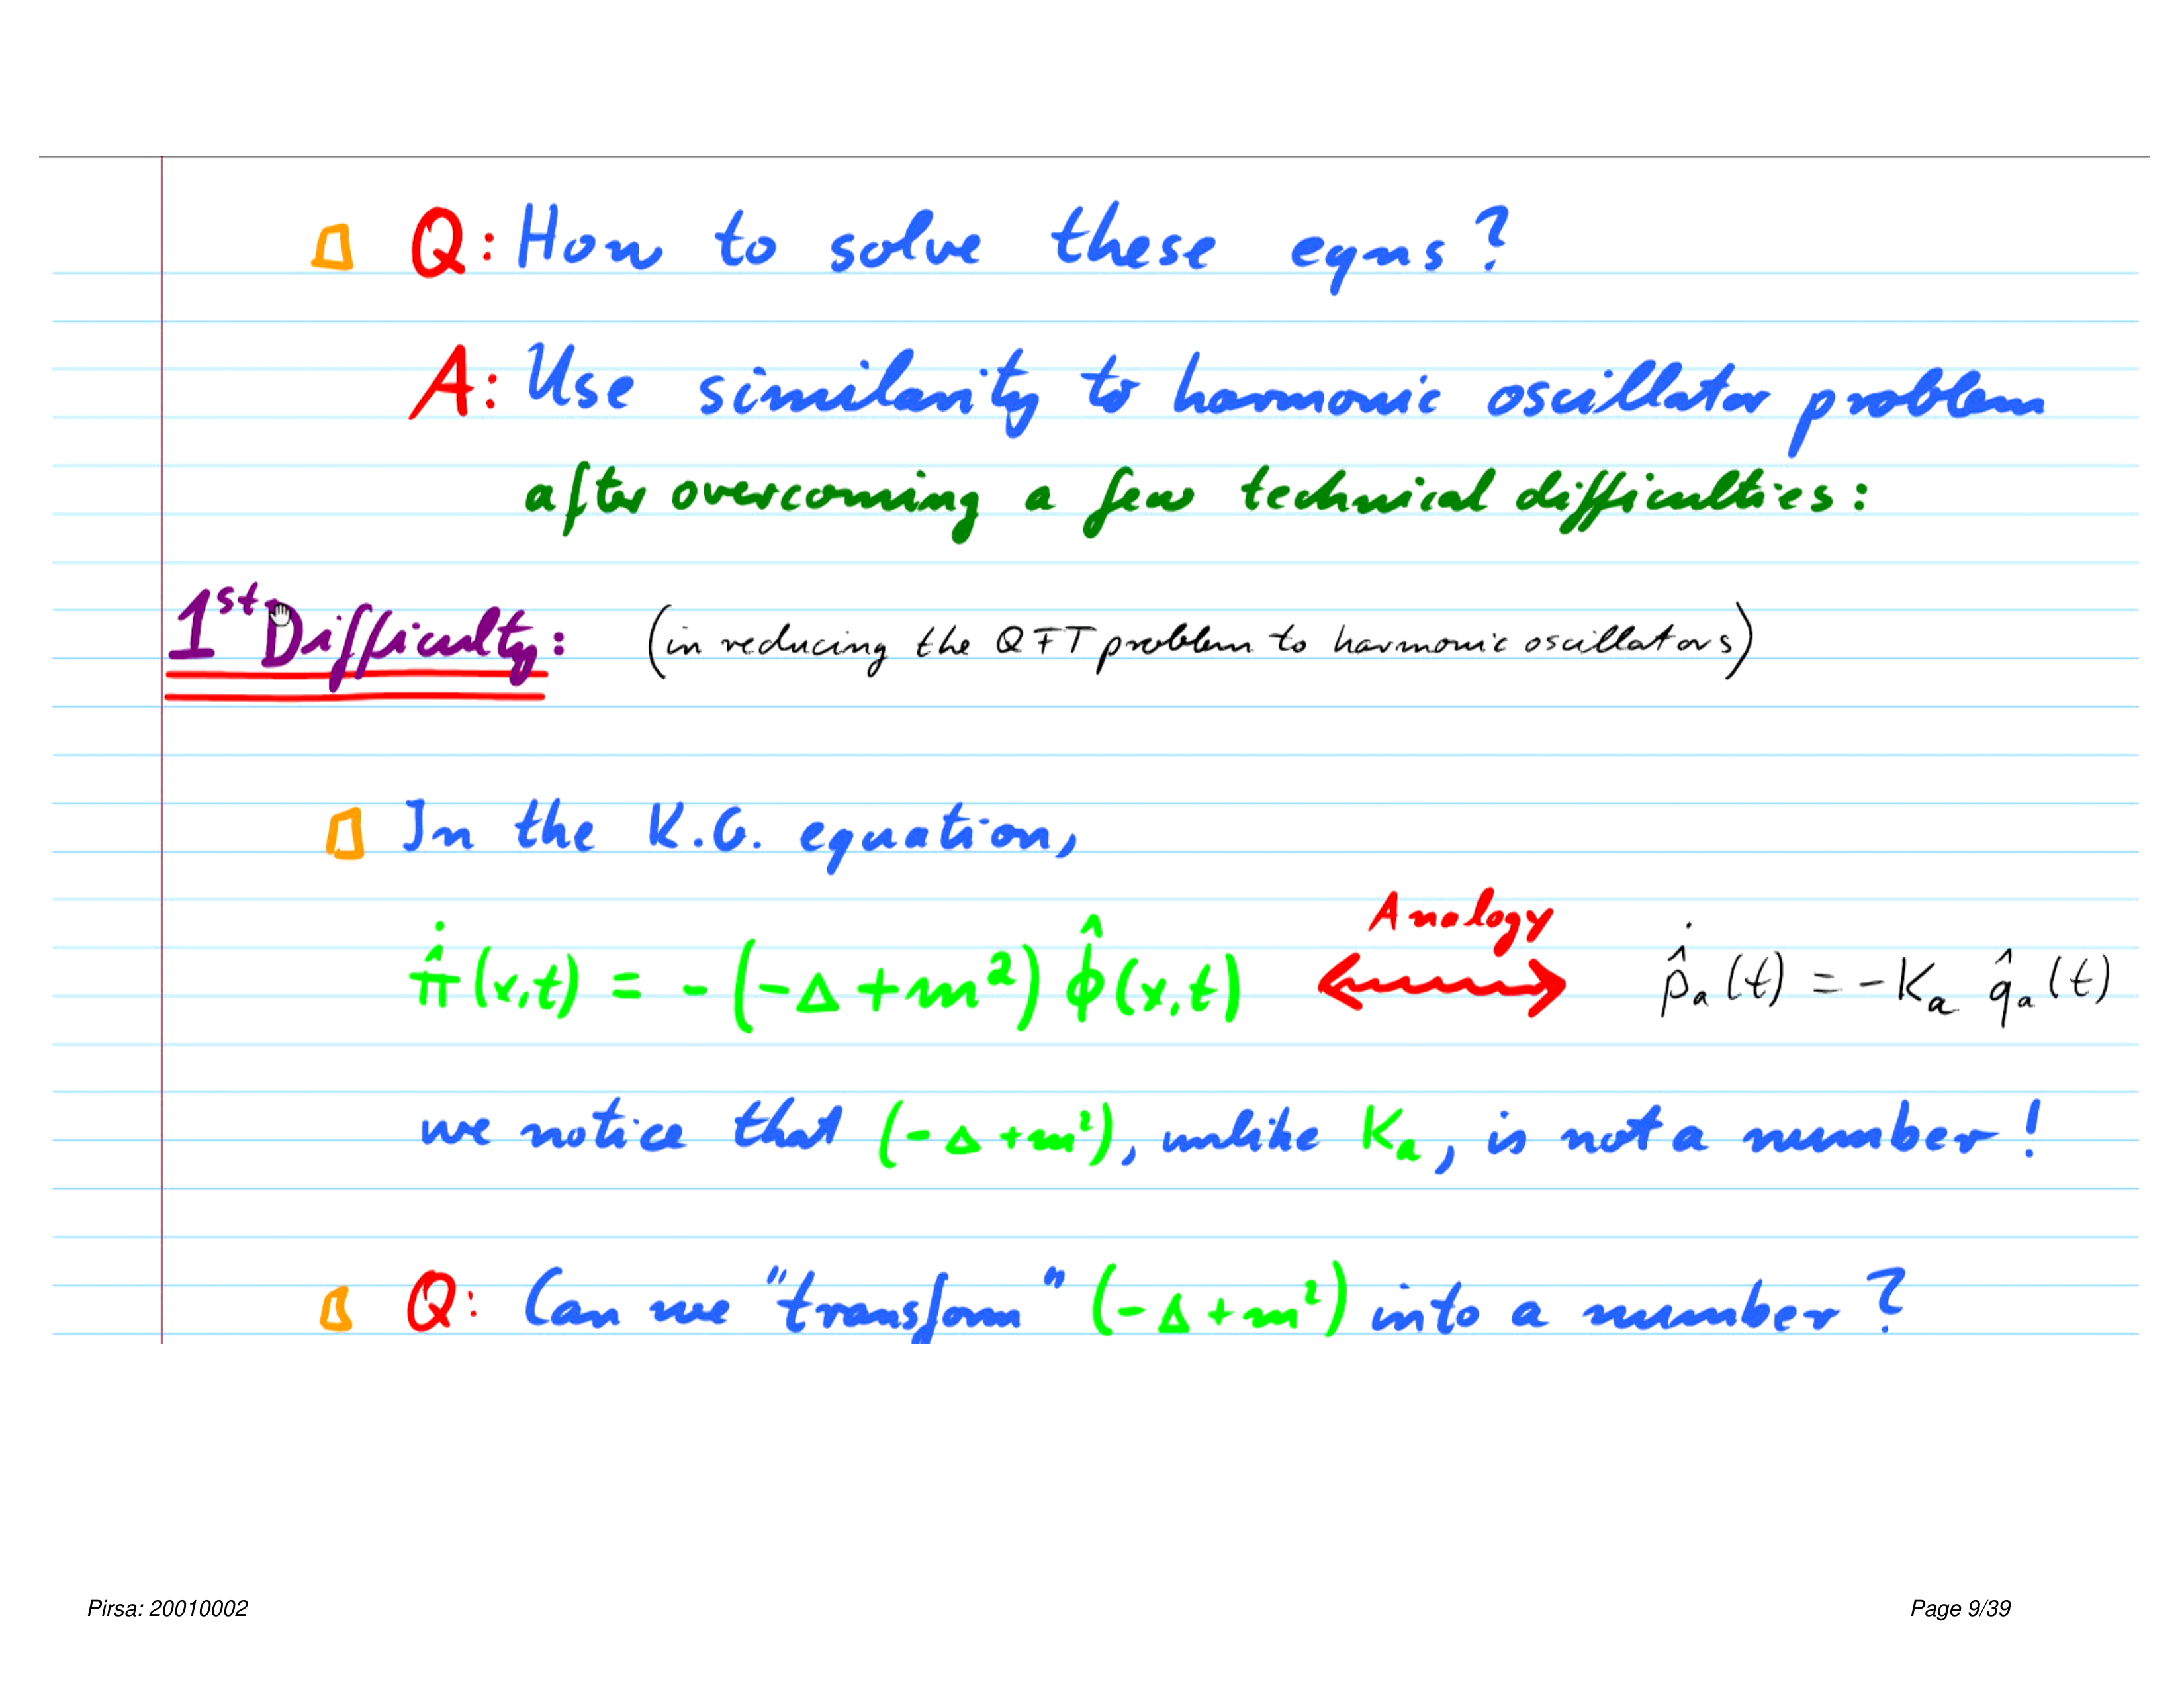 Q: How to solve these eqns?
A: Use similarity to harmonic oscillator problem
after overcoming a few technical difficulties:
1st Difficulty: (in reducing the QFT problem to harmonic oscillators)
In the K.G. equation,
Analogy
π̂̇(x,t) = -(-Δ+m²) φ̂(x,t) ⟷ p̂̇ₐ(t) = -Kₐ q̂ₐ(t)
we notice that (-Δ+m²), unlike Kₐ, is not a number!
Q: Can we "transform" (-Δ+m²) into a number?
Pirsa: 20010002 Page 9/39